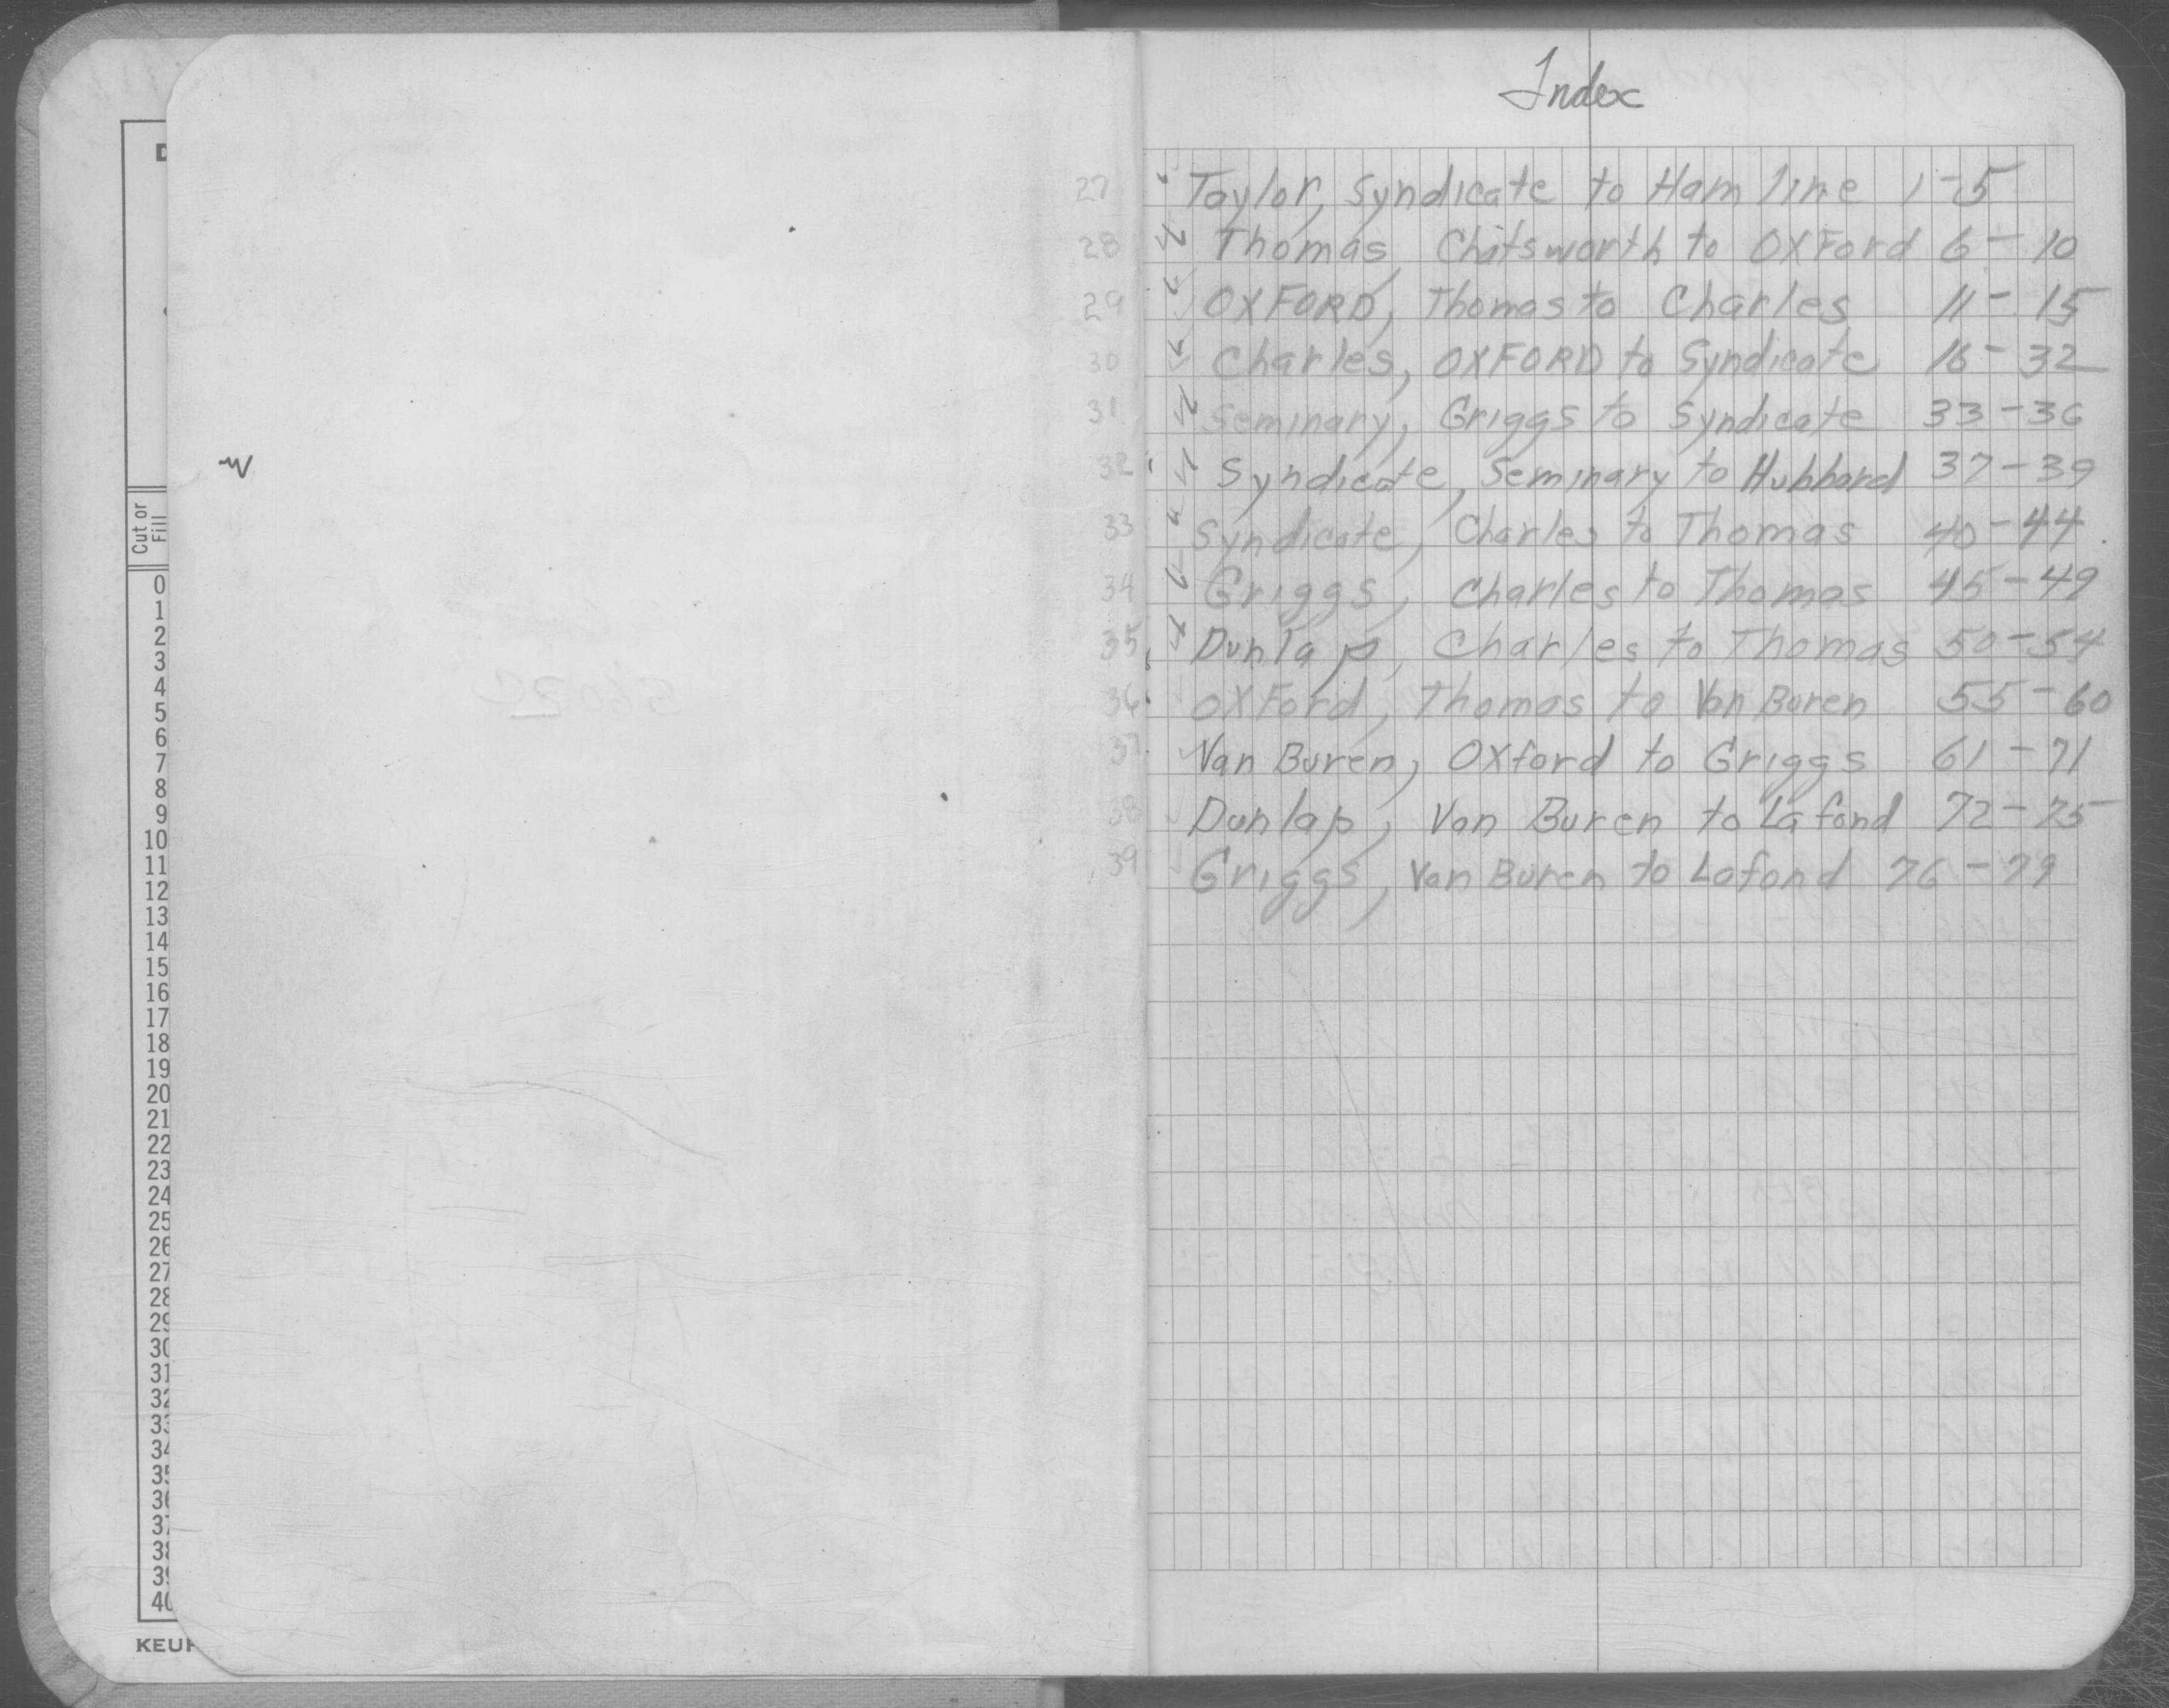 Index
27 Taylor, Syndicate to Hamline 1-5
28 Thomas, Chatsworth to OXFord 6-10
29 OXFORD, Thomas to Charles 11-15
30 Charles, OXFORD to Syndicate 16-32
31 Seminary, Griggs to Syndicate 33-36
32 Syndicate, Seminary to Hubbard 37-39
33 Syndicate, Charles to Thomas 40-44
34 Griggs, Charles to Thomas 45-49
35 Dunlap, Charles to Thomas 50-54
36 OXFord, Thomas to Van Buren 55-60
37 Van Buren, OXford to Griggs 61-71
38 Dunlap, Van Buren to Lafond 72-75
39 Griggs, Van Buren to Lafond 76-79
Cut or
Fill
0
1
2
3
4
5
6
7
8
9
10
11
12
13
14
15
16
17
18
19
20
21
22
23
24
25
26
27
28
29
30
31
32
33
34
35
36
37
38
39
40